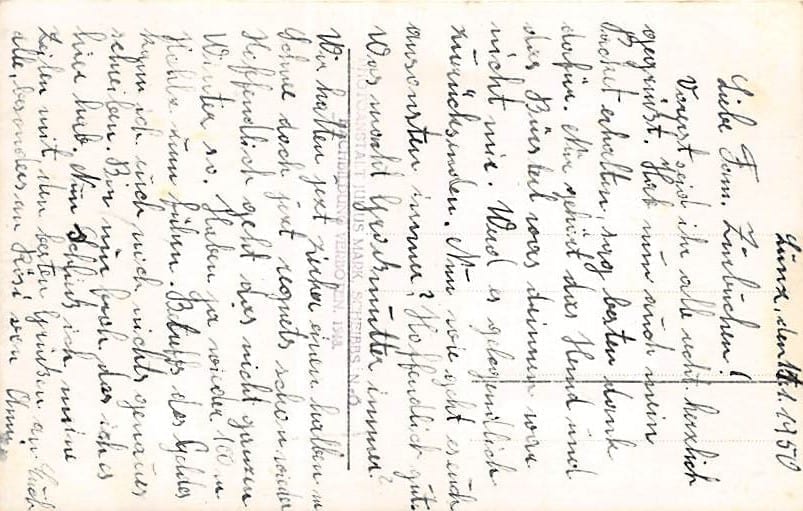 Lunz, den 18.1.1950
Liebe Fam. Zurbüchen!
Vorerst seid ihr alle recht herzlich
gegrüßt. Hab nun auch mein
Packet erhalten, sag besten dank
dafür. Nur gehört das Hemd und
das Bürsterl was drinnen war
nicht mir. Werd es gelegendlich
zurücksenden. Nun wie geht es euch
ansonsten immer? Hoffendlich gut.
Was macht Grosmutter immer?
Wir hatten jezt vorher einen halben m
Schnee doch jezt regnets schon wieder
Hoffendlich geht dies nicht ganzen
Winter so. Haben ja wieder 100 m
Betreffs des Geldes
kann ich euch noch nichts genaues
schreiben. Bin nur froh das ich es
hier hab. Nun schließ ich meine
Zeilen mit den besten Grüßen an Euch
alle, besonders an Resi von Anni
PHOTOANSTALT JULIUS MARK, SCHEIBBS N.Ö.
NACHBILDUNG VERBOTEN.